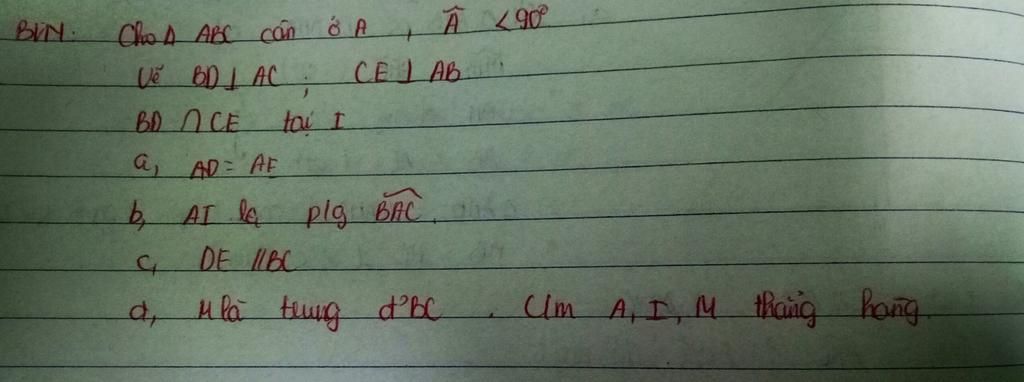 BVN. Cho Δ ABC cân ở A , Â < 90°
Vẽ BD ⊥ AC ; CE ⊥ AB
BD ∩ CE tại I
a, AD = AE
b, AI là p/g BAC.
c, DE // BC
d, M là trung đ' BC . C/m A, I, M thẳng hàng.